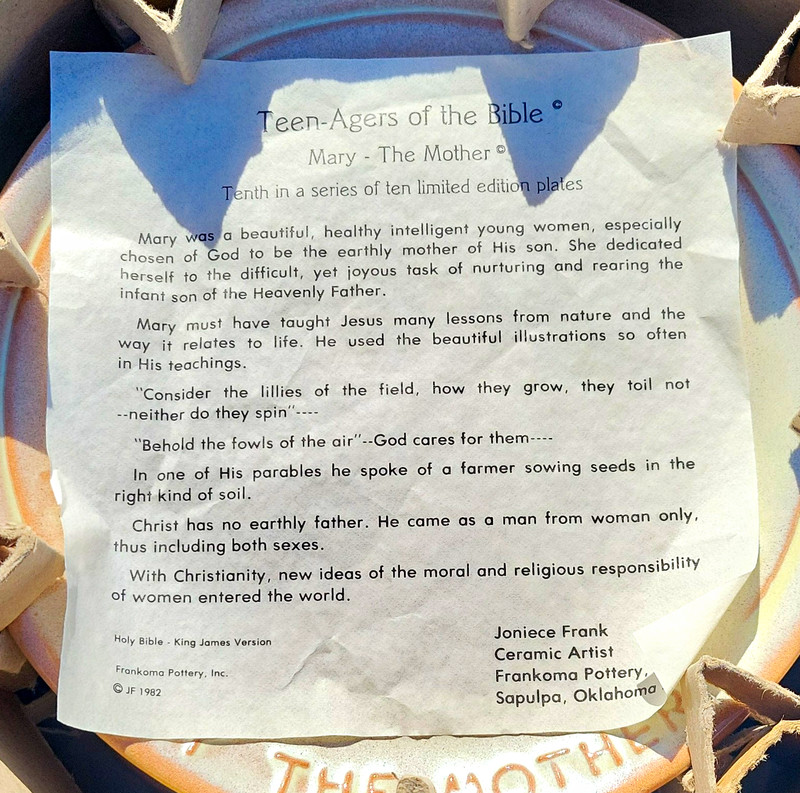 Teen-Agers of the Bible ©
Mary - The Mother ©
Tenth in a series of ten limited edition plates
Mary was a beautiful, healthy intelligent young women, especially
chosen of God to be the earthly mother of His son. She dedicated
herself to the difficult, yet joyous task of nurturing and rearing the
infant son of the Heavenly Father.
Mary must have taught Jesus many lessons from nature and the
way it relates to life. He used the beautiful illustrations so often
in His teachings.
"Consider the lillies of the field, how they grow, they toil not
--neither do they spin"----
"Behold the fowls of the air"--God cares for them----
In one of His parables he spoke of a farmer sowing seeds in the
right kind of soil.
Christ has no earthly father. He came as a man from woman only,
thus including both sexes.
With Christianity, new ideas of the moral and religious responsibility
of women entered the world.
Holy Bible - King James Version
Frankoma Pottery, Inc.
© JF 1982
Joniece Frank
Ceramic Artist
Frankoma Pottery,
Sapulpa, Oklahoma
THE MOTHER